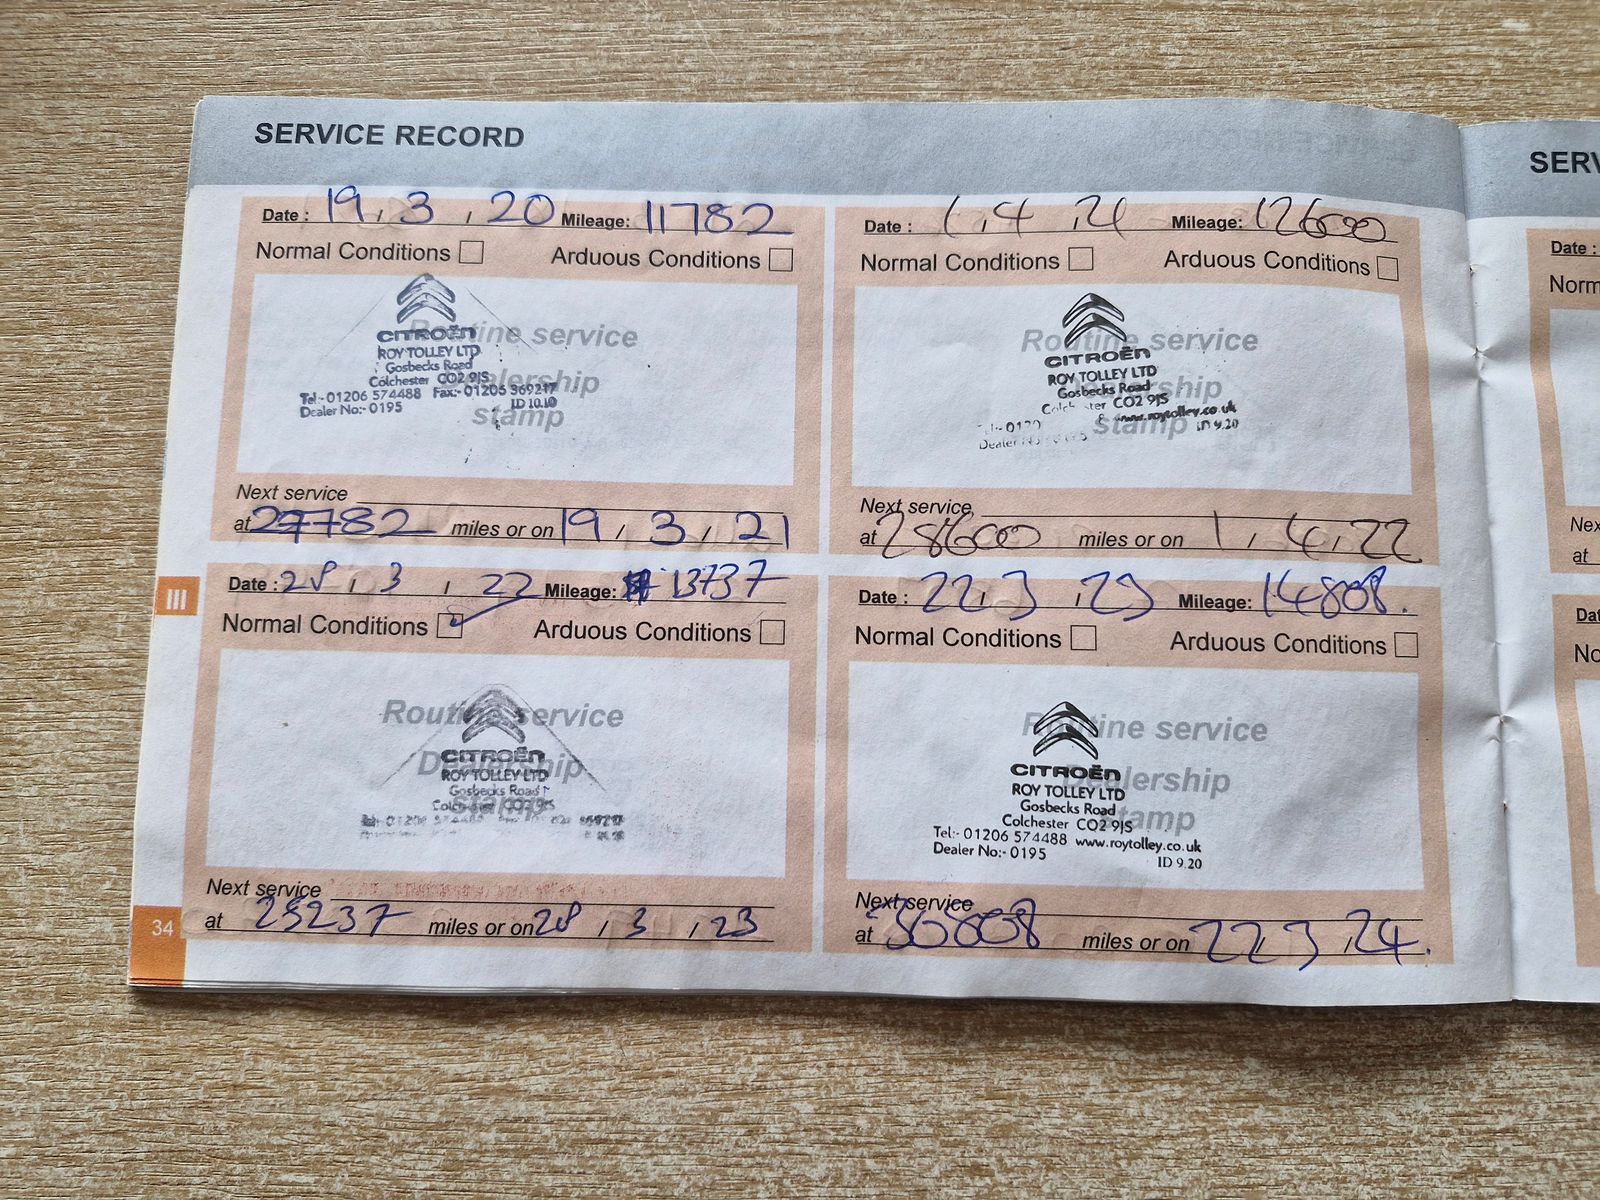 SERVICE RECORD
Date : 19 , 3 , 20 Mileage: 11782
Normal Conditions Arduous Conditions
Routine service
Dealership
stamp
CITROËN
ROY TOLLEY LTD
Gosbecks Road
Colchester CO2 9JS
Tel:- 01206 574488 Fax:- 01206 369217
Dealer No:- 0195 ID 10.10
Next service
at 27782 miles or on 19 , 3 , 21
Date : 1 , 4 , 21 Mileage: 12600
Normal Conditions Arduous Conditions
Routine service
Dealership
stamp
CITROËN
ROY TOLLEY LTD
Gosbecks Road
Colchester CO2 9JS
Tel:- 0120 www.roytolley.co.uk
Dealer No:- 0195 ID 9.20
Next service
at 28600 miles or on 1 , 4 , 22
III
Date : 28 , 3 , 22 Mileage: 13737
Normal Conditions Arduous Conditions
Routine service
Dealership
stamp
CITROËN
ROY TOLLEY LTD
Gosbecks Road
Colchester CO2 9JS
01206 574488 369217
Next service
at 25237 miles or on 28 , 3 , 23
Date : 22 , 3 , 23 Mileage: 14808.
Normal Conditions Arduous Conditions
Routine service
Dealership
stamp
CITROËN
ROY TOLLEY LTD
Gosbecks Road
Colchester CO2 9JS
Tel:- 01206 574488 www.roytolley.co.uk
Dealer No:- 0195 ID 9.20
Next service
at 30808 miles or on 22 , 3 , 24.
34
SERV
Date :
Norm
Nex
at
Dat
No